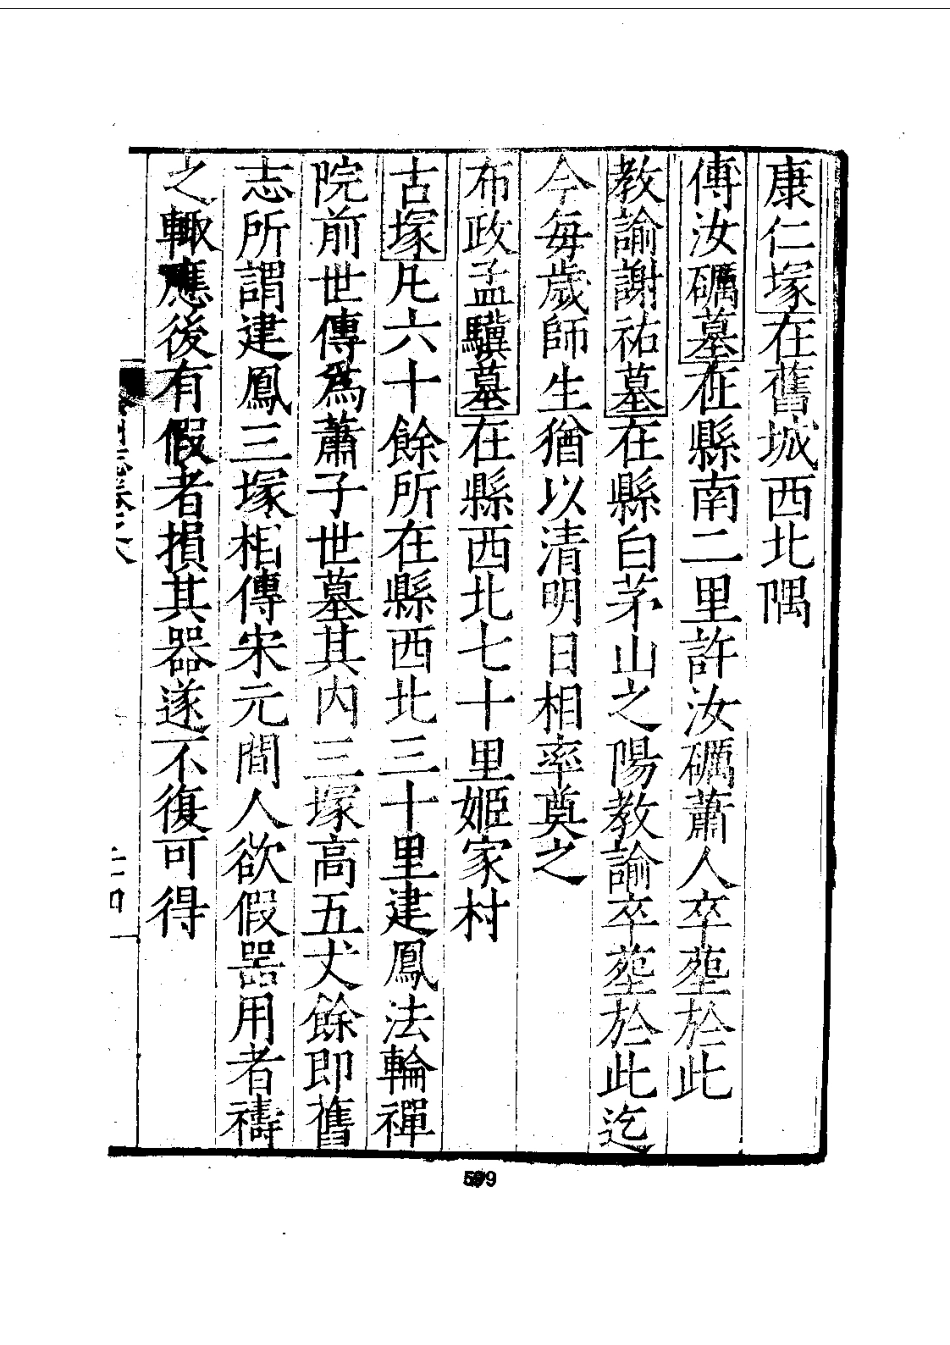 康仁塚在舊城西北隅
傅汝礪墓在縣南二里許汝礪蕭人卒塟於此
教諭謝祐墓在縣白茅山之陽教諭卒塟於此迄
今每歲師生猶以清明日相率奠之
布政孟驥墓在縣西北七十里姬家村
古塚凡六十餘所在縣西北三十里建鳳法輪禪
院前世傳為蕭子世墓其內三塚高五丈餘即舊
志所謂建鳳三塚相傳宋元間人欲假器用者禱
之輙應後有假者損其器遂不復可得
599